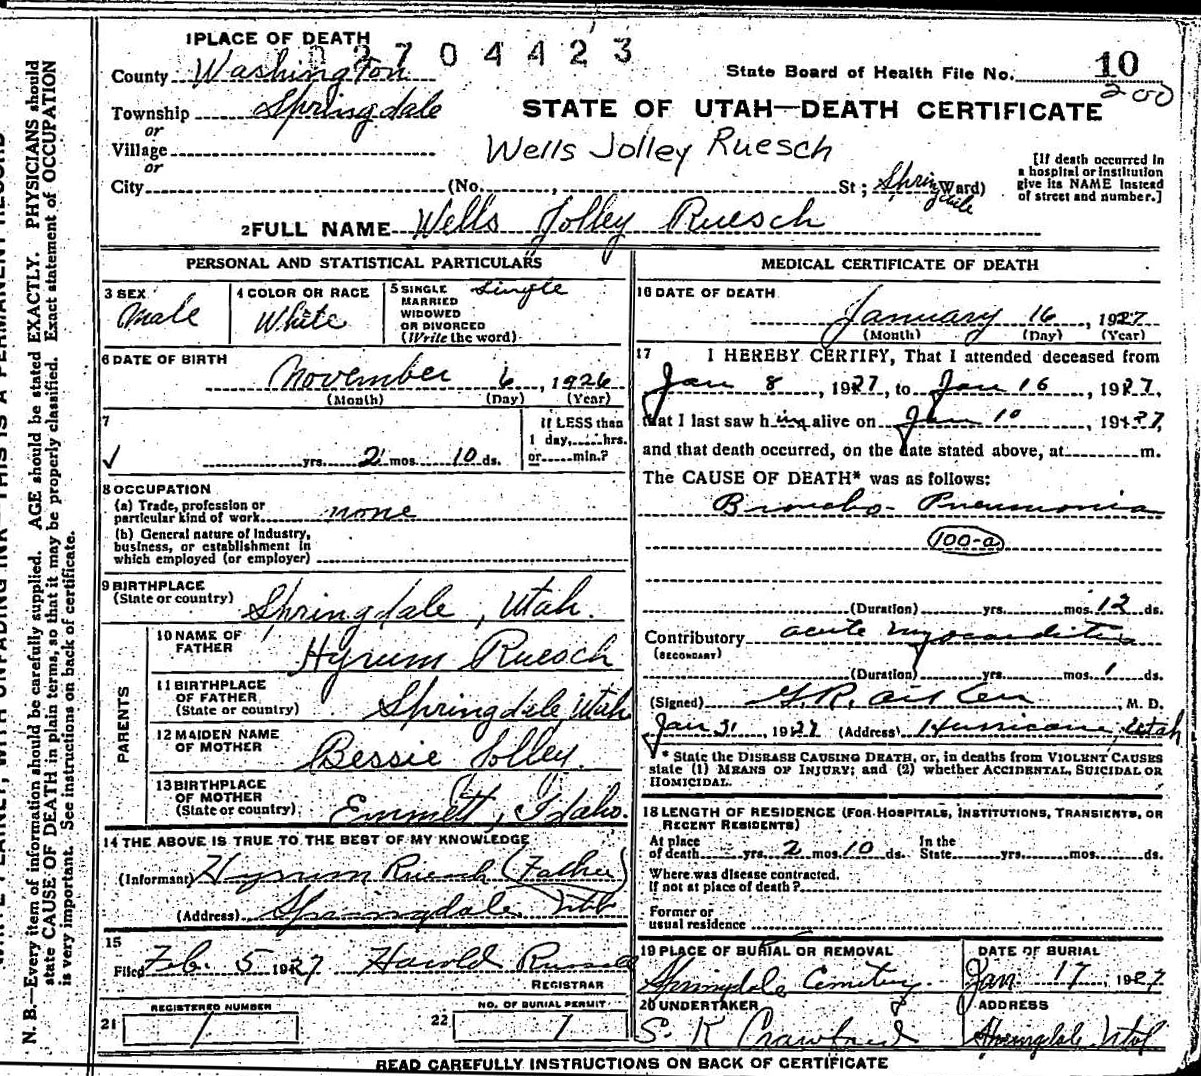 1 PLACE OF DEATH
02704423
County Washington
State Board of Health File No. 10
200
Township Springdale
STATE OF UTAH—DEATH CERTIFICATE
or
Village
Wells Jolley Ruesch
or
City (No. , St ; Springdale Ward)
[If death occurred in a hospital or institution give its NAME instead of street and number.]
2 FULL NAME Wells Jolley Ruesch
PERSONAL AND STATISTICAL PARTICULARS
3 SEX
Male
4 COLOR OR RACE
White
5 SINGLE MARRIED WIDOWED OR DIVORCED (Write the word)
Single
6 DATE OF BIRTH
November 6, 1926
(Month) (Day) (Year)
7
yrs. 2 mos. 10 ds.
If LESS than 1 day, hrs. or min.?
8 OCCUPATION
(a) Trade, profession or particular kind of work none
(b) General nature of industry, business, or establishment in which employed (or employer)
9 BIRTHPLACE
(State or country) Springdale, Utah.
PARENTS
10 NAME OF FATHER Hyrum Ruesch
11 BIRTHPLACE OF FATHER (State or country) Springdale, Utah
12 MAIDEN NAME OF MOTHER Bessie Jolley.
13 BIRTHPLACE OF MOTHER (State or country) Emmett, Idaho.
14 THE ABOVE IS TRUE TO THE BEST OF MY KNOWLEDGE
(Informant) Hyrum Ruesch (Father)
(Address) Springdale Utah
15
Filed Feb. 5 1927 Harold Russell
REGISTRAR
REGISTERED NUMBER
21 1
NO. OF BURIAL PERMIT
22 1
MEDICAL CERTIFICATE OF DEATH
16 DATE OF DEATH
January 16, 1927
(Month) (Day) (Year)
17 I HEREBY CERTIFY, That I attended deceased from
Jan 8, 1927, to Jan 16, 1927,
that I last saw him alive on Jan 10, 1927,
and that death occurred, on the date stated above, at m.
The CAUSE OF DEATH* was as follows:
Broncho-Pneumonia
100-a
(Duration) yrs. mos. 12 ds.
Contributory acute myocarditis
(SECONDARY)
(Duration) yrs. mos. 1 ds.
(Signed) G.R. Aiken, M. D.
Jan 31, 1927 (Address) Hurricane, Utah
* State the DISEASE CAUSING DEATH, or, in deaths from VIOLENT CAUSES
state (1) MEANS OF INJURY; and (2) whether ACCIDENTAL, SUICIDAL OR
HOMICIDAL.
18 LENGTH OF RESIDENCE (FOR HOSPITALS, INSTITUTIONS, TRANSIENTS, OR
RECENT RESIDENTS)
At place of death yrs. 2 mos. 10 ds. In the State yrs. mos. ds.
Where was disease contracted,
If not at place of death?
Former or
usual residence
19 PLACE OF BURIAL OR REMOVAL
Springdale Cemetery.
DATE OF BURIAL
Jan 17, 1927
20 UNDERTAKER
S. K Crawford
ADDRESS
Springdale Utah
READ CAREFULLY INSTRUCTIONS ON BACK OF CERTIFICATE
N. B.—Every item of information should be carefully supplied. AGE should be stated EXACTLY. PHYSICIANS should
state CAUSE OF DEATH in plain terms, so that it may be properly classified. Exact statement of OCCUPATION
is very important. See instructions on back of certificate.